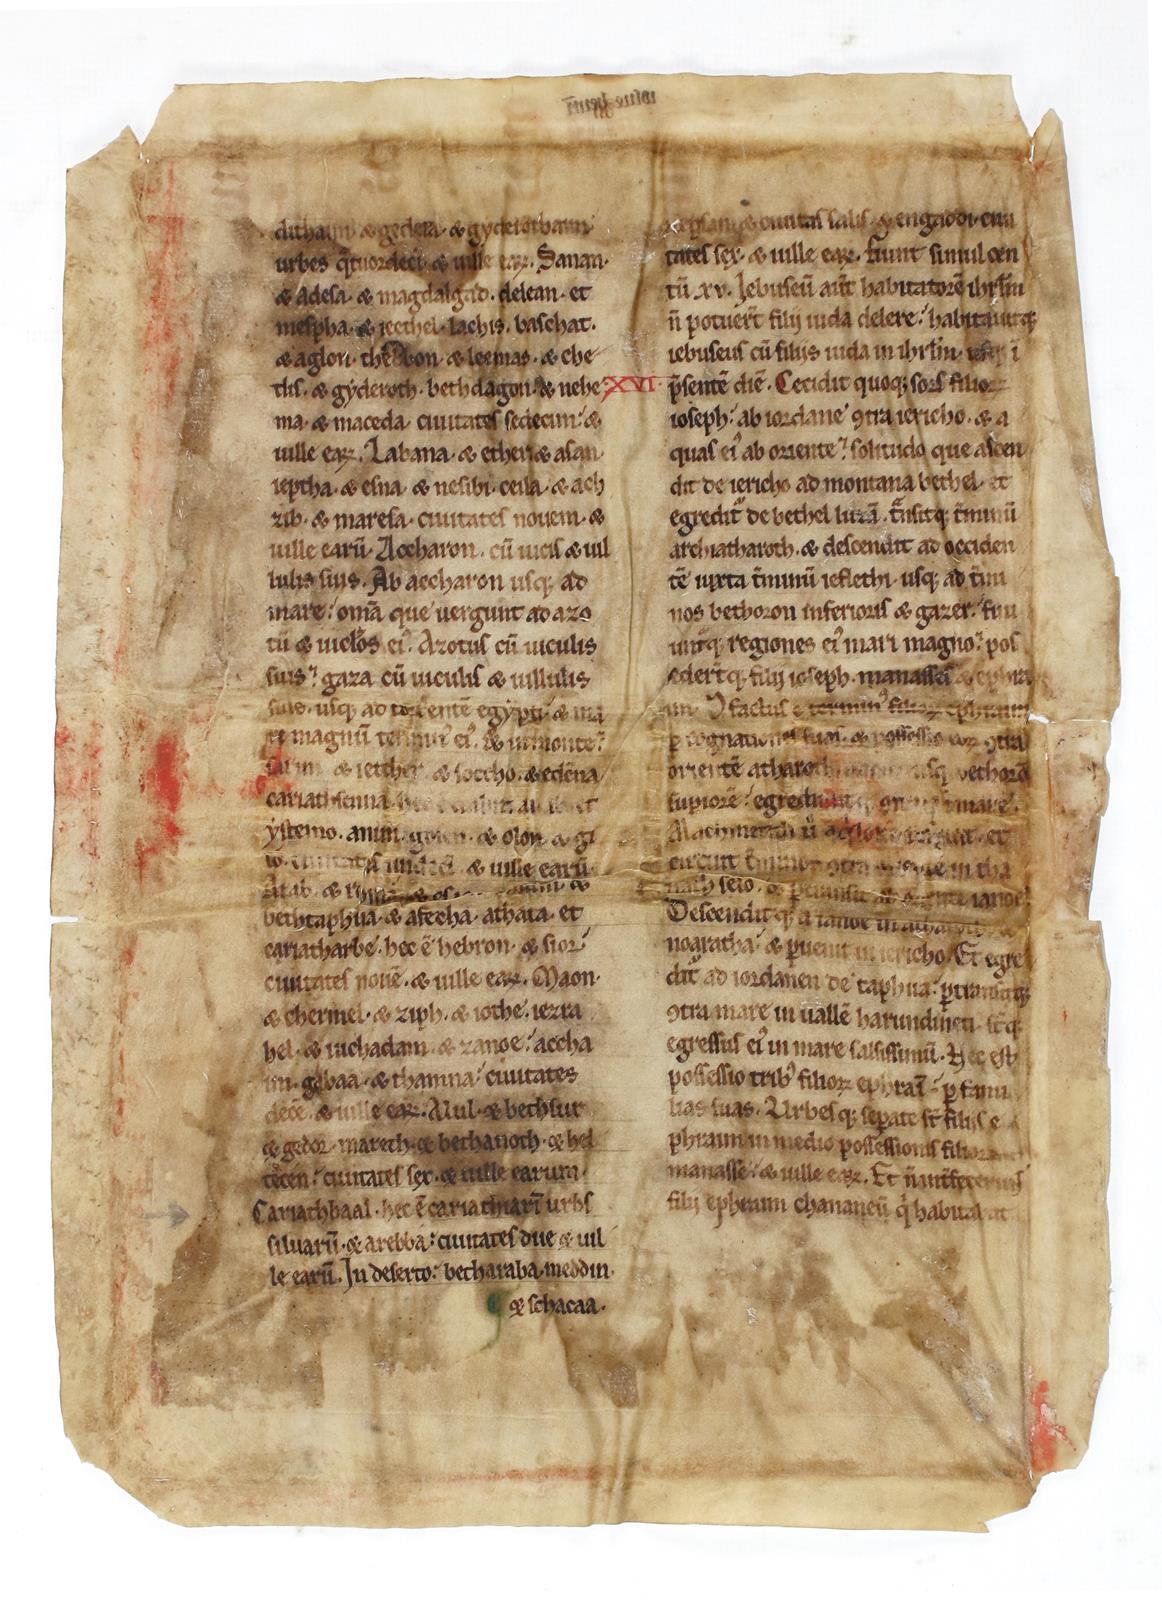 dithaim & gedera & gyderothaim
urbes q̃tuordeci & uille eaꝝ. Sanan.
& adesa. & magdalgad. delean. et
mespha. & iecthel. lachis. baschat.
& aglon. thebbon. & leemas. & che
tlis. & gyderoth. bethdagon. & nehe
ma. & maceda. ciuitates sedecim. &
uille eaꝝ. Labana. & ether & asan.
ieptha. & esna. & nesibi. ceila. & ach
zib. & maresa. ciuitates nouem. &
uille earū. Accharon. cū uicis & uil
lulis suis. Ab accharon usq; ad
mare. om̄a que uergunt ad azo
tū & uiclōs eiꝰ. Azotus cū uiculis
suis. gaza cū uiculis & uillulis
suis. usq; ad torrentē egypti. & ma
re magnū terminꝰ eiꝰ. & in monte.
samir & iether. & soccho. & edēna
cariathsenna. hec ē dabir. et
ystemo. anim. gosen. & olon. & gi
lo. ciuitates undeci. & uille earū.
Arab. & ruma &
bethtaphua. & afecha. athata. et
cariatharbe. hec ē hebron. & sior.
ciuitates nouē. & uille eaꝝ. Maon.
& chermel. & ziph. & iothe. iezra
hel. & iuchadam. & zanoe. accha
im. gabaa. & thamna. ciuitates
decē. & uille eaꝝ. Alul. & bethsur
& gedor. mareth. & bethanoth. & hel
tecen. ciuitates sex. & uille earum.
Cariathbaal. hec ē cariathiarī urbs
siluarū. & arebba. ciuitates due & uil
le earū. In deserto. betharaba. meddin.
& schacaa.
& ciuitas salis. & engaddi. ciui
tates sex. & uille eaꝝ. fiunt simul cen
tū xv. Iebuseū aut̄ habitatorē ihrl̄m
n̄ potuer̄t filij iuda delere. habitauitq;
iebuseus cū filijs iuda in ihrl̄m. usq; ī
XVI p̄sentē diē. Cecidit quoq; sors filioꝝ
ioseph. ab iordane ꝯtra iericho. & a
quas eiꝰ ab oriente. solitudo que ascen
dit de iericho ad montana bethel. et
egredit᷑ de bethel luzā. t̄nsitq; t̄minū
archiatharoth. & descendit ad occiden
tē iuxta t̄minū ieflethi. usq; ad t̄mi
nos bethoron inferioris & gazer. fini
unt᷑q; regiones eiꝰ mari magno. pos
sedert̄q; filij ioseph. manasses & ephra
im. Et factus ē terminꝰ filioꝝ ephraim
ꝑ cognationes suas. & possessio eoꝝ ꝯtra
orientē atharoth usq; bethorō
supiorē. egrediunt᷑q; mare.
Machmetath ū aq̇lonē et
circuit t̄minos ꝯtra orientē in tha
nath selo. & ꝑtransit ab oriente ianoe.
Descenditq; a ianoe in atharoth &
noaratha. & ꝑuenit in iericho. Et egre
dit᷑ ad iordanen de taphua. ꝑtransitq;
ꝯtra mare in uallē harundineti. st̄q;
egressus eiꝰ in mare salsissimū. Hec est
possessio tribꝰ filioꝝ ephraī. ꝑ fami
lias suas. Urbesq; seꝑate st̄ filijs e
phraim in medio possessionis filioꝝ
manasse. & uille eaꝝ. Et n̄ int̄fecerunt
filij ephraim chananeū q̇ habitabat